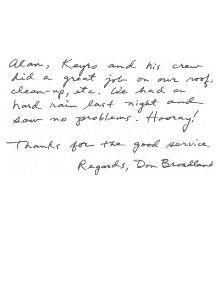 Alan, Keyro and his crew
did a great job on our roof,
clean-up, etc. We had a
hard rain last night and
saw no problems. Hooray!
Thanks for the good service
Regards, Don Broadland